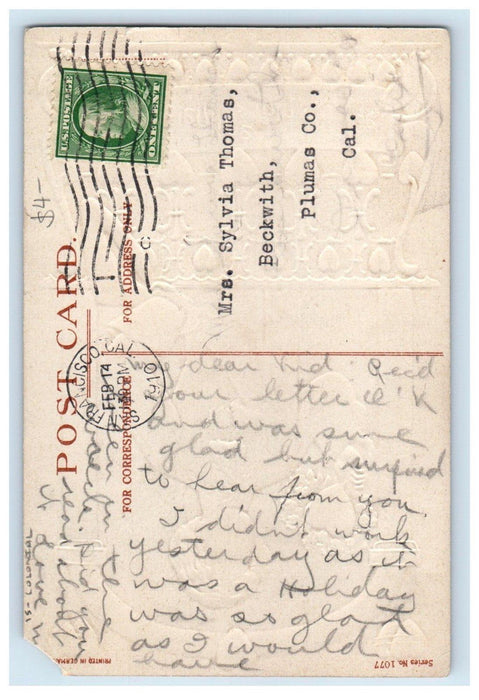 U.S. POSTAGE
ONE CENT
$4-
POST CARD.
FOR ADDRESS ONLY
FOR CORRESPONDENCE
Mrs. Sylvia Thomas,
Beckwith,
Plumas Co.,
Cal.
FRANCISCO, CAL.
FEB 14
PM
1910
My dear Frd. Rec'd
your letter O'K
and was sure
glad but surprised
to hear from you.
I didn't work
yesterday as it
was a Holiday
was so glad
as I would
have
been in
the
did you
read about
15 - COLONIAL
PRINTED IN GERMA
Series No. 1077